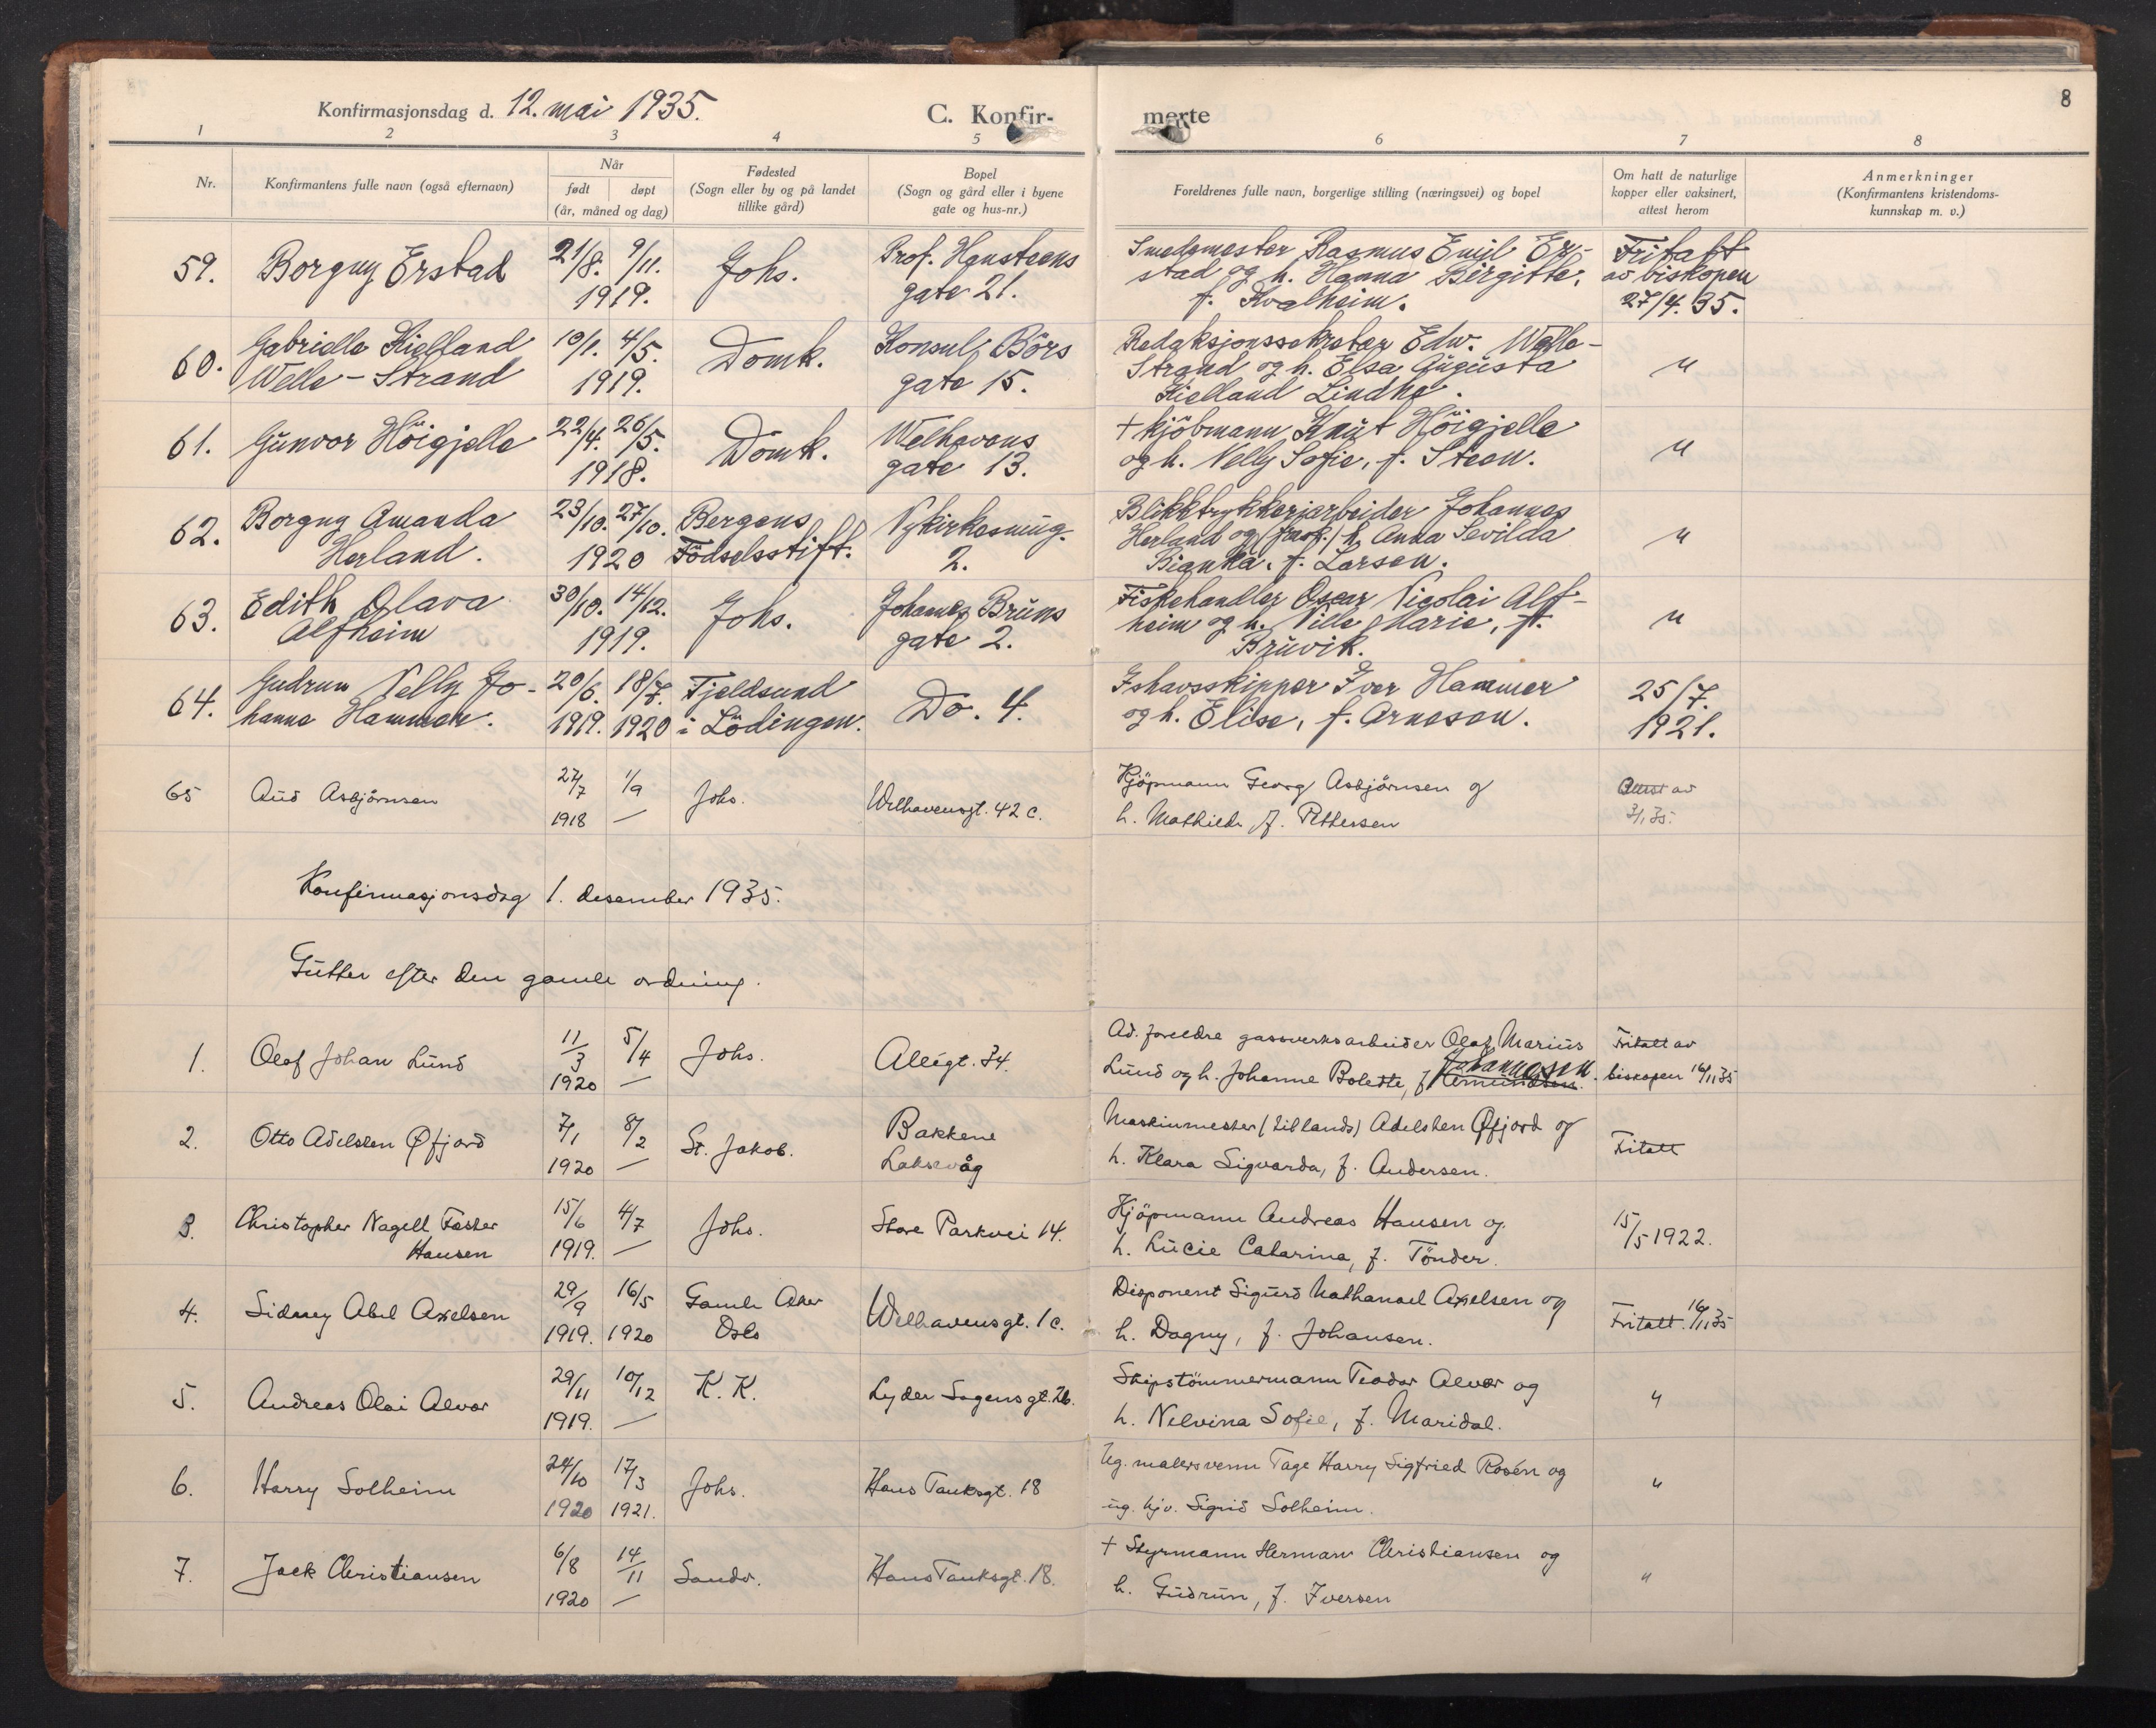 8
Konfirmasjonsdag d. 12. mai 1935.
C. Konfir-
merte
1 2 3 4 5 6 7 8
Nr.
Konfirmantens fulle navn (også efternavn)
Når
født døpt
(år, måned og dag)
Fødested
(Sogn eller by og på landet
tillike gård)
Bopel
(Sogn og gård eller i byene
gate og hus-nr.)
Foreldrenes fulle navn, borgerlige stilling (næringsvei) og bopel
Om hatt de naturlige
kopper eller vaksinert,
attest herom
Anmerkninger
(Konfirmantens kristendoms-
kunnskap m. v.)
59. Borgny Erstad 21/8. 9/11. 1919. Johs. Prof. Hansteens
gate 21.
Smedmester Rasmus Emil Er-
stad og h. Hanna Birgitte,
f. Kvalheim.
Fritatt
av biskopen
27/4. 35.
60. Gabrielle Kielland
Welle-Strand
10/1. 4/5.
1919.
Domk.
Konsul Börs
gate 15.
Redaksjonssekretær Edw. Welle-
Strand og h. Elsa Augusta
Kielland Lindhe.
"
61. Gunvor Höigjelle
22/4. 26/5.
1918.
Domk.
Welhavens
gate 13.
+ kjöbmann Knut Höigjelle
og h. Nelly Sofie, f. Steen.
"
62. Borgny Amanda
Herland.
23/10. 27/10.
1920
Bergens
Födselsstift.
Nykirkesmug.
2.
Blikktrykkerjarbeider Johannes
Herland og h. Anna Sevilda
Bianka, f. Larsen.
"
63. Edith Olava
Alfheim
30/10. 14/12.
1919.
Johs.
Johannes Bruns
gate 2.
Fiskehandler Oscar Nicolai Alf-
heim og h. Ville Marie, f.
Bruvik.
"
64. Gudrun Nelly Jo-
hanne Hammer.
20/6. 18/7.
1919. 1920
Fjeldsund
i Lödingen.
Do. 4.
Ishavsskipper Iver Hammer
og h. Elise, f. Arnesen.
25/7.
1921.
65 Aud Asbjörnsen
27/7 1/9
1918 —
Johs.
Welhavensgt. 42 c.
Kjöpmann Georg Asbjörnsen og
h. Mathilde f. Pettersen
Attest av
3/1 35.
Konfirmasjonsdag 1. desember 1935.
Gutter efter den gamle ordning.
1. Olaf Johan Lund
11/3 5/4
1920 —
Johs.
Allégt. 34.
Ad. foreldre gassverksarbeider Olaf Marius
Lund og h. Johanne Bolette, f. Johannesen.
Fritatt av
biskopen 16/11 35
2. Otto Adelsten Øfjord
7/1 8/2
1920 —
St. Jakob.
Bakkene
Laksevåg
Maskinmester (tillands) Adelsten Øfjord og
h. Klara Sigvarda, f. Andersen.
Fritatt
3. Christopher Nagell Faster
Hansen
15/6 4/7
1919. —
Johs.
Store Parkvei 14.
Kjöpmann Andreas Hansen og
h. Lucie Catarina, f. Tönder.
15/5 1922.
4. Sidney Abel Axelsen
29/9 16/5
1919. 1920
Gamle Aker
Oslo
Welhavensgt. 1 c.
Disponent Sigurd Nathanael Axelsen og
h. Dagny, f. Johansen.
Fritatt. 16/11 35
5. Andreas Olai Alvær
29/11 10/12
1919. —
K. K.
Lyder Sagensgt. 26.
Skipstömmermann Teodor Alvær og
h. Nelvina Sofie, f. Maridal.
"
6. Harry Solheim
24/10 17/3
1920 1921.
Johs.
Hans Tanksgt. 18
Ug. malersvenn Tage Harry Sigfried Rosén og
ug. hjv. Sigrid Solheim.
"
7. Jack Christiansen
6/8 14/11
1920 —
Sandv.
Hans Tanksgt. 18.
+ Styrmann Herman Christiansen og
h. Gudrun, f. Iversen
"